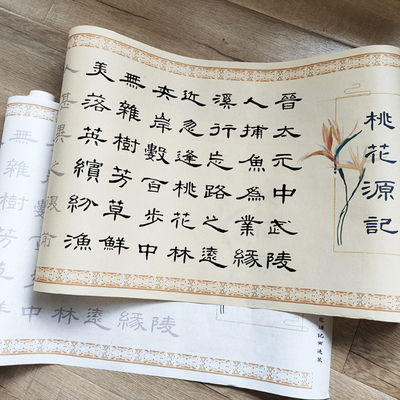 桃花源記
晉太元中武陵
人捕魚爲業緣
溪行忘路之遠
近忽逢桃花林
夾岸數百步中
無雜樹芳草鮮
美落英繽紛漁
陵
緣
遠
林
中